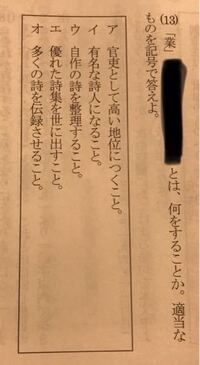 ⒀「業」
とは、何をすることか。適当な
ものを記号で答えよ。
ア　官吏として高い地位につくこと。
イ　有名な詩人になること。
ウ　自作の詩を整理すること。
エ　優れた詩集を世に出すこと。
オ　多くの詩を伝録させること。